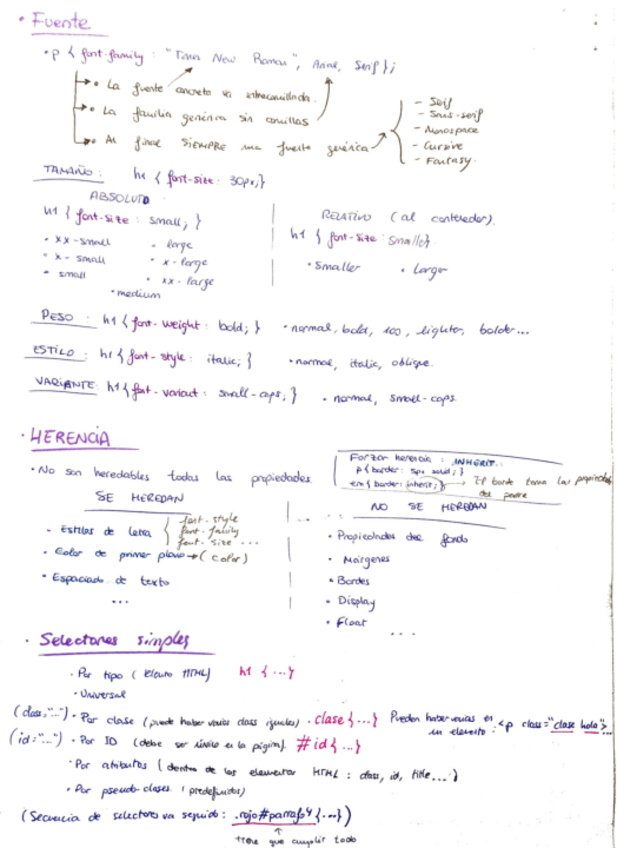 • Fuente
• p { font-family : "Times New Roman", Arial, Serif };
• La fuente concreta va entrecomillada.
• La familia genérica sin comillas
• Al final SIEMPRE una fuente genérica
- Serif
- Sans-serif
- Monospace
- Cursive
- Fantasy.
TAMAÑO: h1 { font-size: 30px;}
ABSOLUTO
h1 { font-size : small; }
• xx-small • large
• x-small • x-large
• small • xx-large
• medium
RELATIVO (al contenedor).
h1 { font-size: smaller}
• Smaller • Larger
PESO : h1 { font-weight : bold; } • normal, bold, 100, lighter, bolder...
ESTILO : h1 { font-style : italic; } • normal, italic, oblique.
VARIANTE: h1 { font-variant : small-caps; } • normal, small-caps.
• HERENCIA
• No son heredables todas las propiedades.
Forzar herencia : INHERIT.
p {border: 5px solid; }
em { border: inherit; } → El borde toma las propiedades
del padre
SE HEREDAN
• Estilos de letra { font-style
font-family
font-size ...
• Color de primer plano → ( color )
• Espaciado de texto
...
NO SE HEREDAN
• Propiedades del fondo
• Márgenes
• Bordes
• Display
• Float
...
• Selectores simples
• Por tipo ( HTML) h1 {...}
• Universal
(class="...") • Por clase (puede haber varias class iguales) .clase {...} Pueden haber varias en
un elemento : <p class="clase hola">
(id="...") • Por ID (debe ser único en la página). #id {...}
• Por atributos ( dentro de los elementos HTML : class, id, title... )
• Por pseudo-clases ( predefinidos)
(Secuencia de selectores va seguido : .rojo#parrafo4 {...})
↑
tiene que cumplir todo